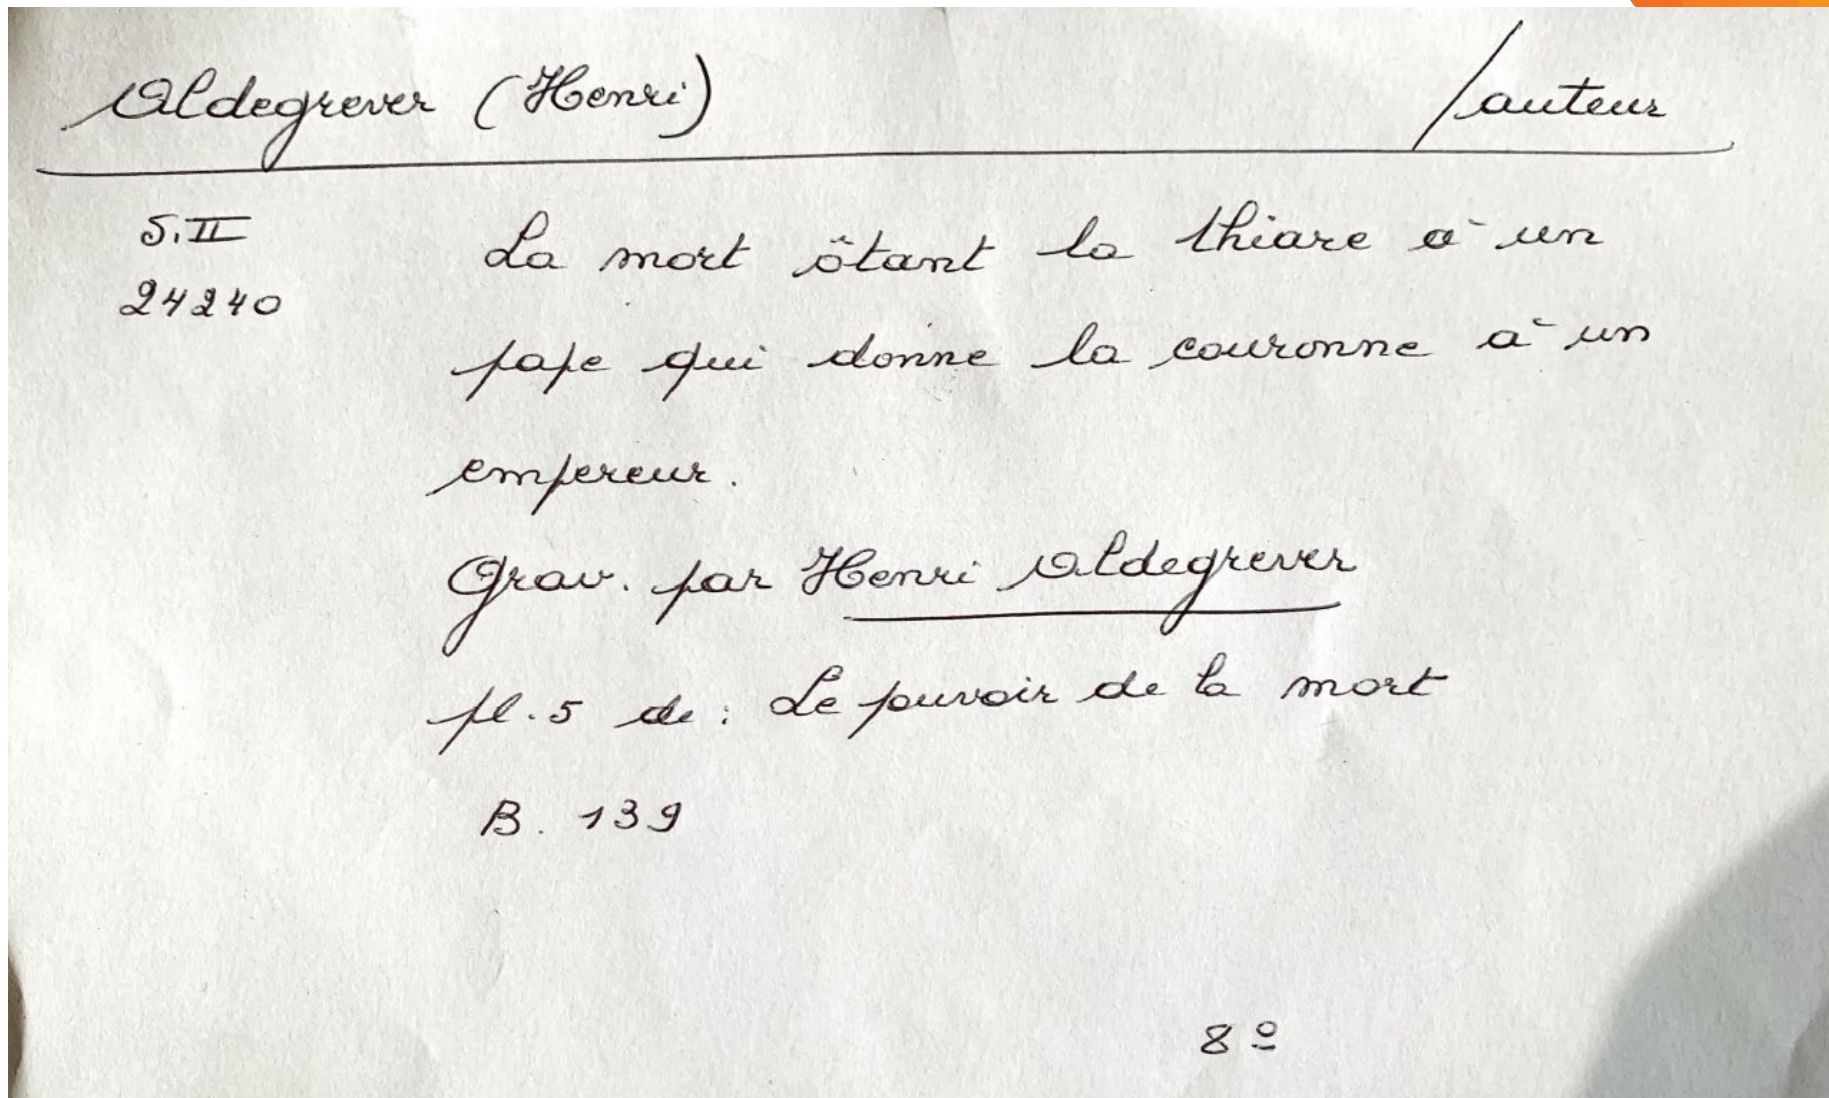 Aldegrever (Henri) /auteur
S.II
24240
La mort ôtant la thiare à un
pape qui donne la couronne à un
empereur.
Grav. par Henri Aldegrever
pl. 5 de : Le puvoir de la mort
B. 139
8º